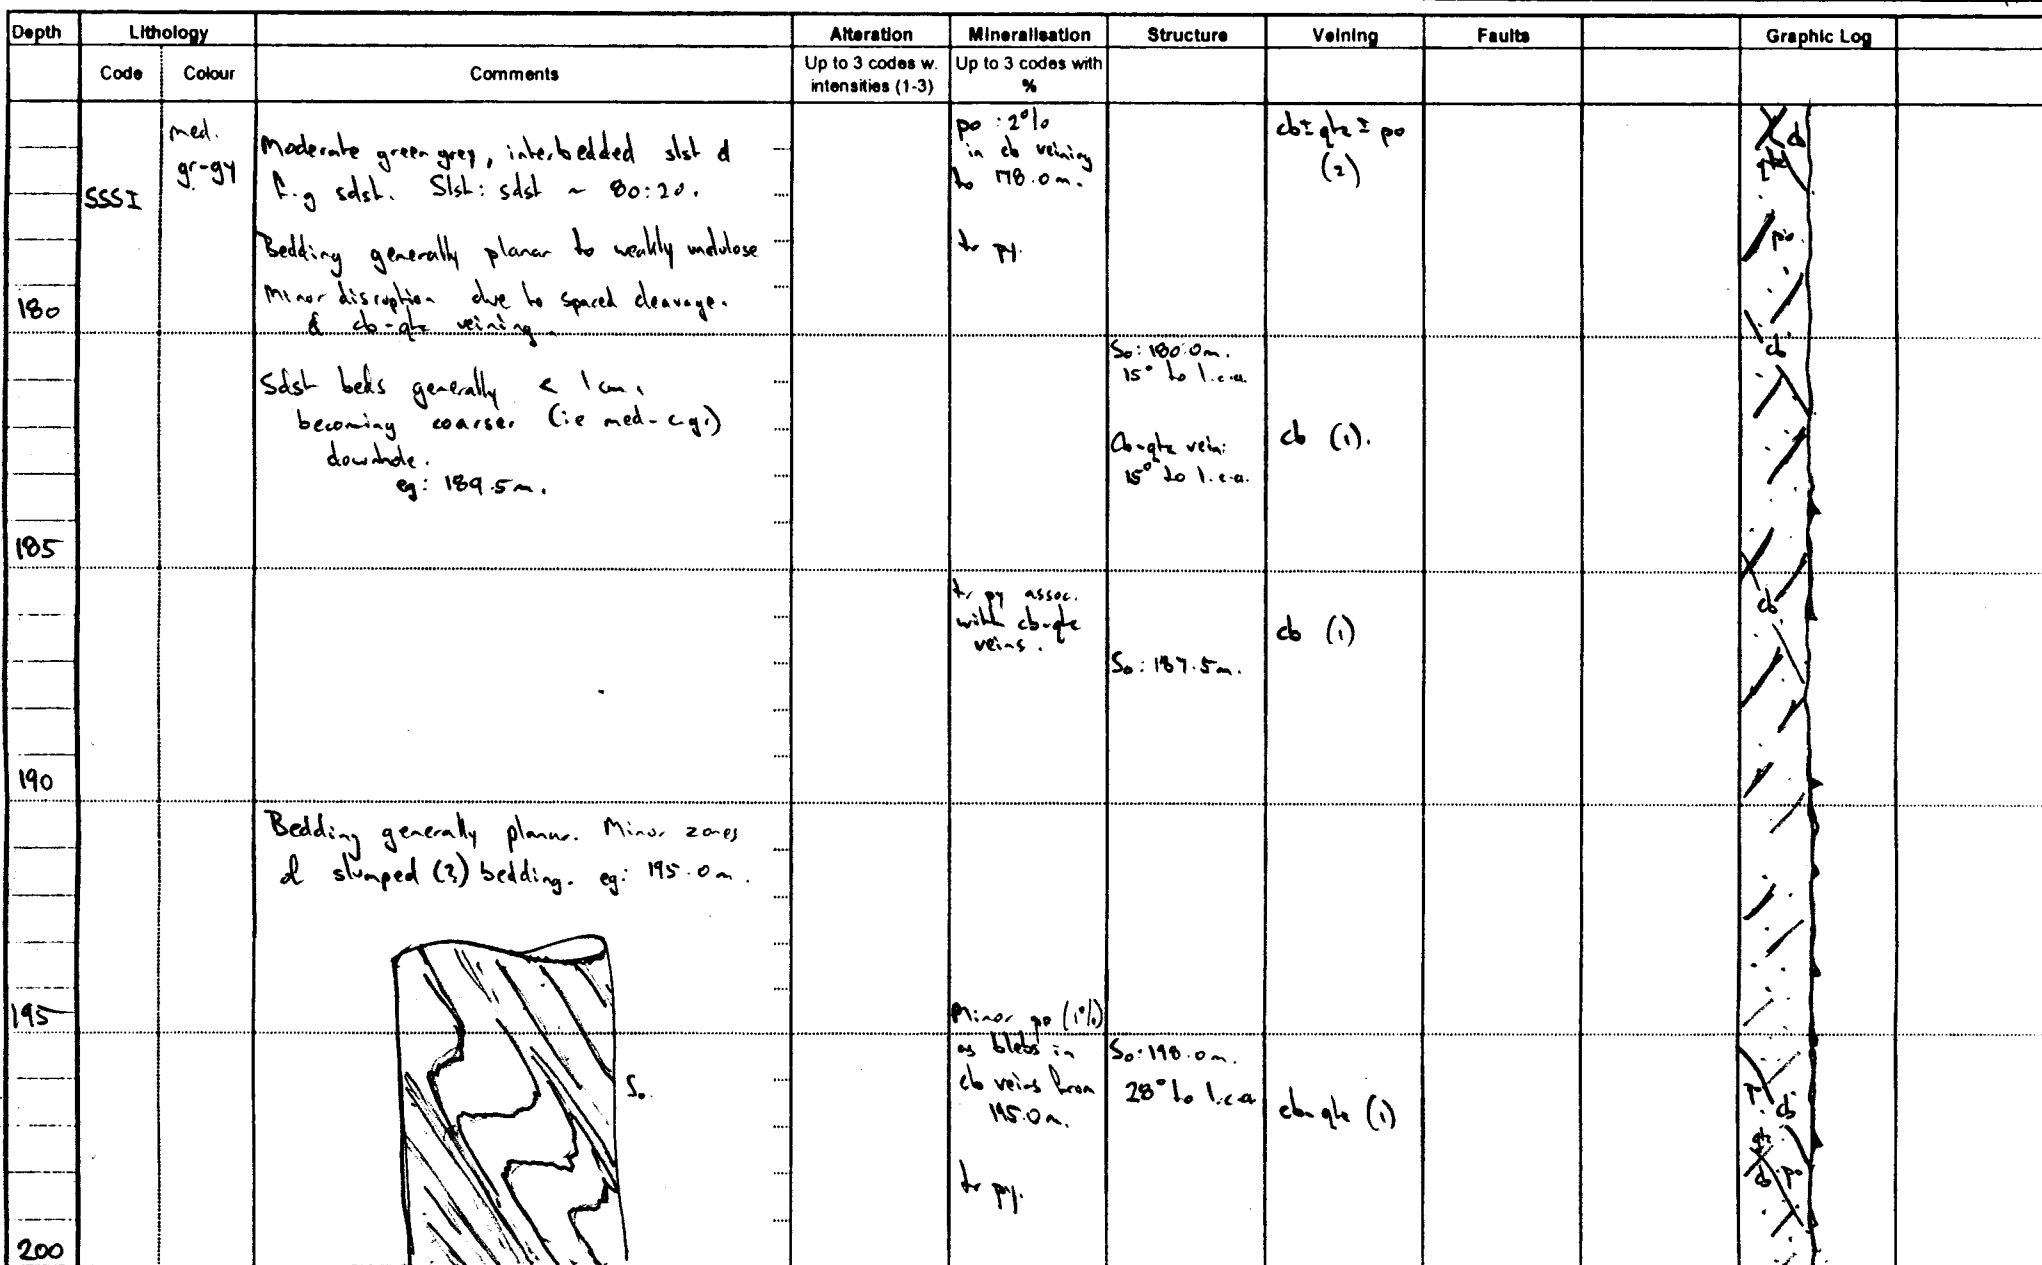 Depth Lithology Alteration Mineralisation Structure Veining Faults Graphic Log
Code Colour Comments Up to 3 codes w. intensities (1-3) Up to 3 codes with %
SSSI
med.
gr-gy
Moderate green grey, interbedded slst &
f.g sdst. Slst: sdst ~ 80:20.
Bedding generally planar to weakly undulose
Minor disruption due to spaced cleavage.
& cb-qtz veining.
po : 2%
in cb veining
to 178.0m.
tr py.
cb±qtz±po
(2)
cb
qtz
po
180
Sdst beds generally < 1cm,
becoming coarser (ie med-c.g.)
downhole.
eg: 189.5m.
So: 180.0m.
15° to l.c.a.
Cb-qtz vein:
15° to l.c.a.
cb (1).
cb
185
tr py assoc.
with cb-qtz
veins.
So: 187.5m.
cb (1)
cb
190
Bedding generally planar. Minor zones
of slumped (?) bedding. eg: 195.0m.
So
195
Minor po (1%)
as blebs in
cb veins from
195.0m.
tr py.
So: 198.0m.
28° to l.c.a
cb-qtz (1)
po
cb
qtz
cb po
200